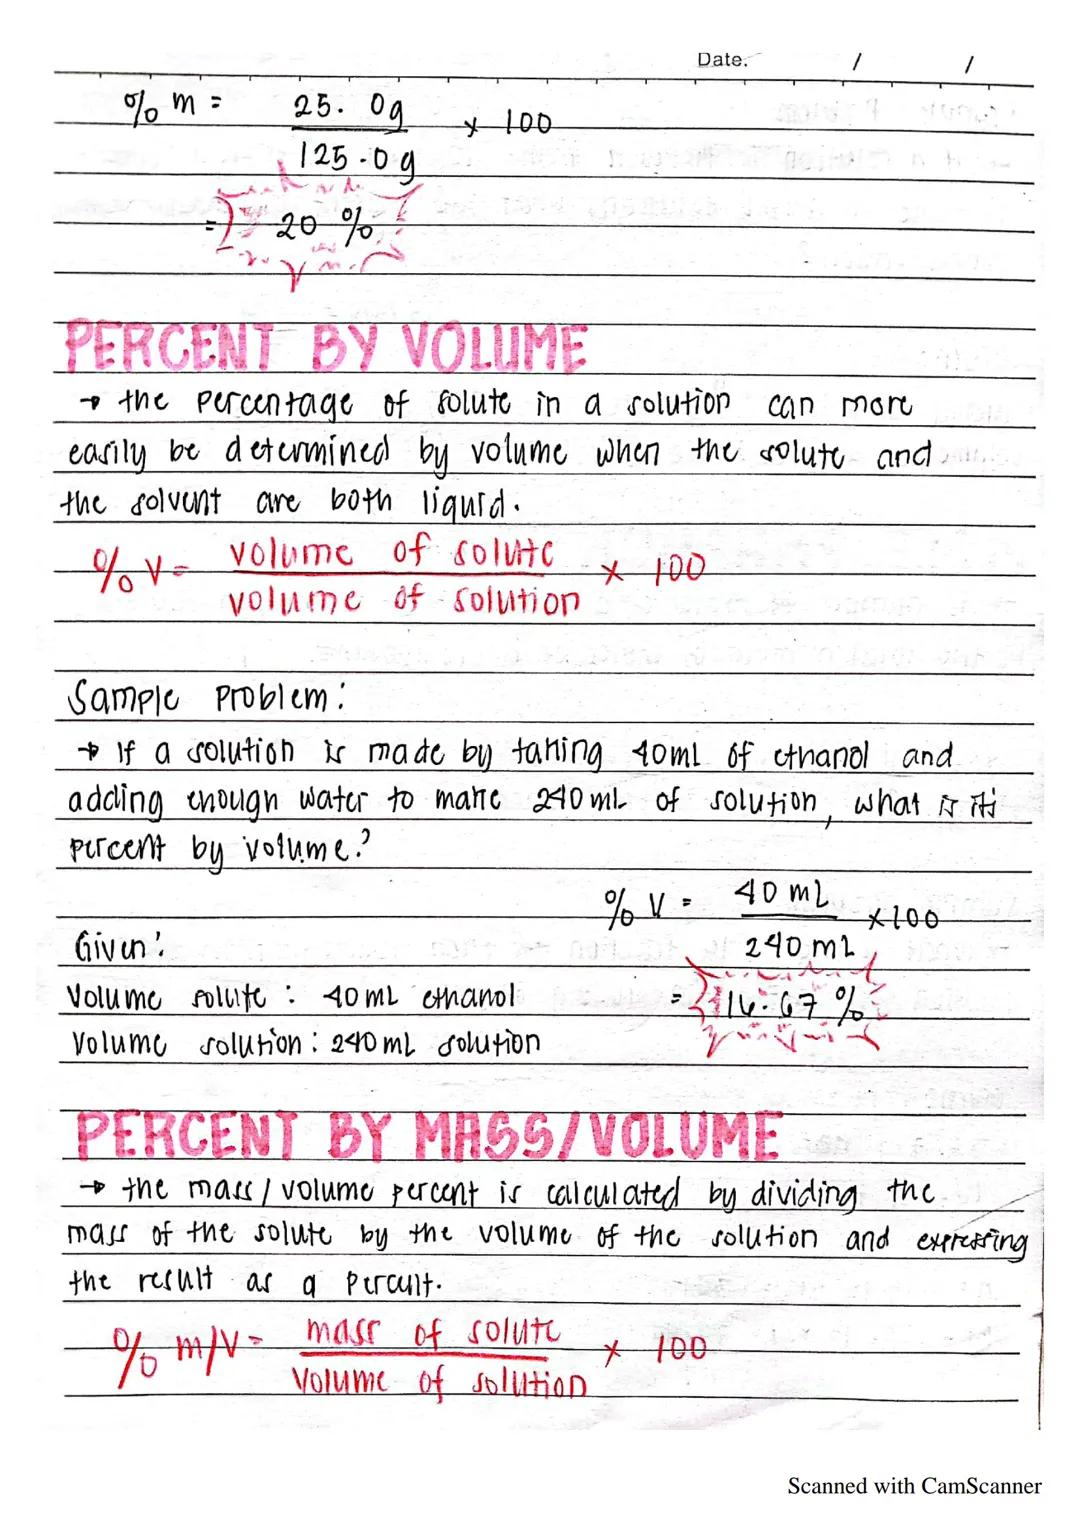 Date. / /
% m = 25.0g x 100
125.0g
= 20 %
PERCENT BY VOLUME
→ the percentage of solute in a solution can more
easily be determined by volume when the solute and
the solvent are both liquid.
% V = volume of solute x 100
volume of solution
Sample Problem:
→ If a solution is made by taking 40ml of ethanol and
adding enough water to make 240 mL of solution, what is its
percent by volume?
% V = 40 mL x100
240 mL
Given:
Volume solute : 40 mL ethanol
= 16.67 %
Volume solution : 240 mL solution
PERCENT BY MASS/VOLUME
→ the mass / volume percent is calculated by dividing the
mass of the solute by the volume of the solution and expressing
the result as a percent.
% m/V = mass of solute x 100
Volume of solution
Scanned with CamScanner